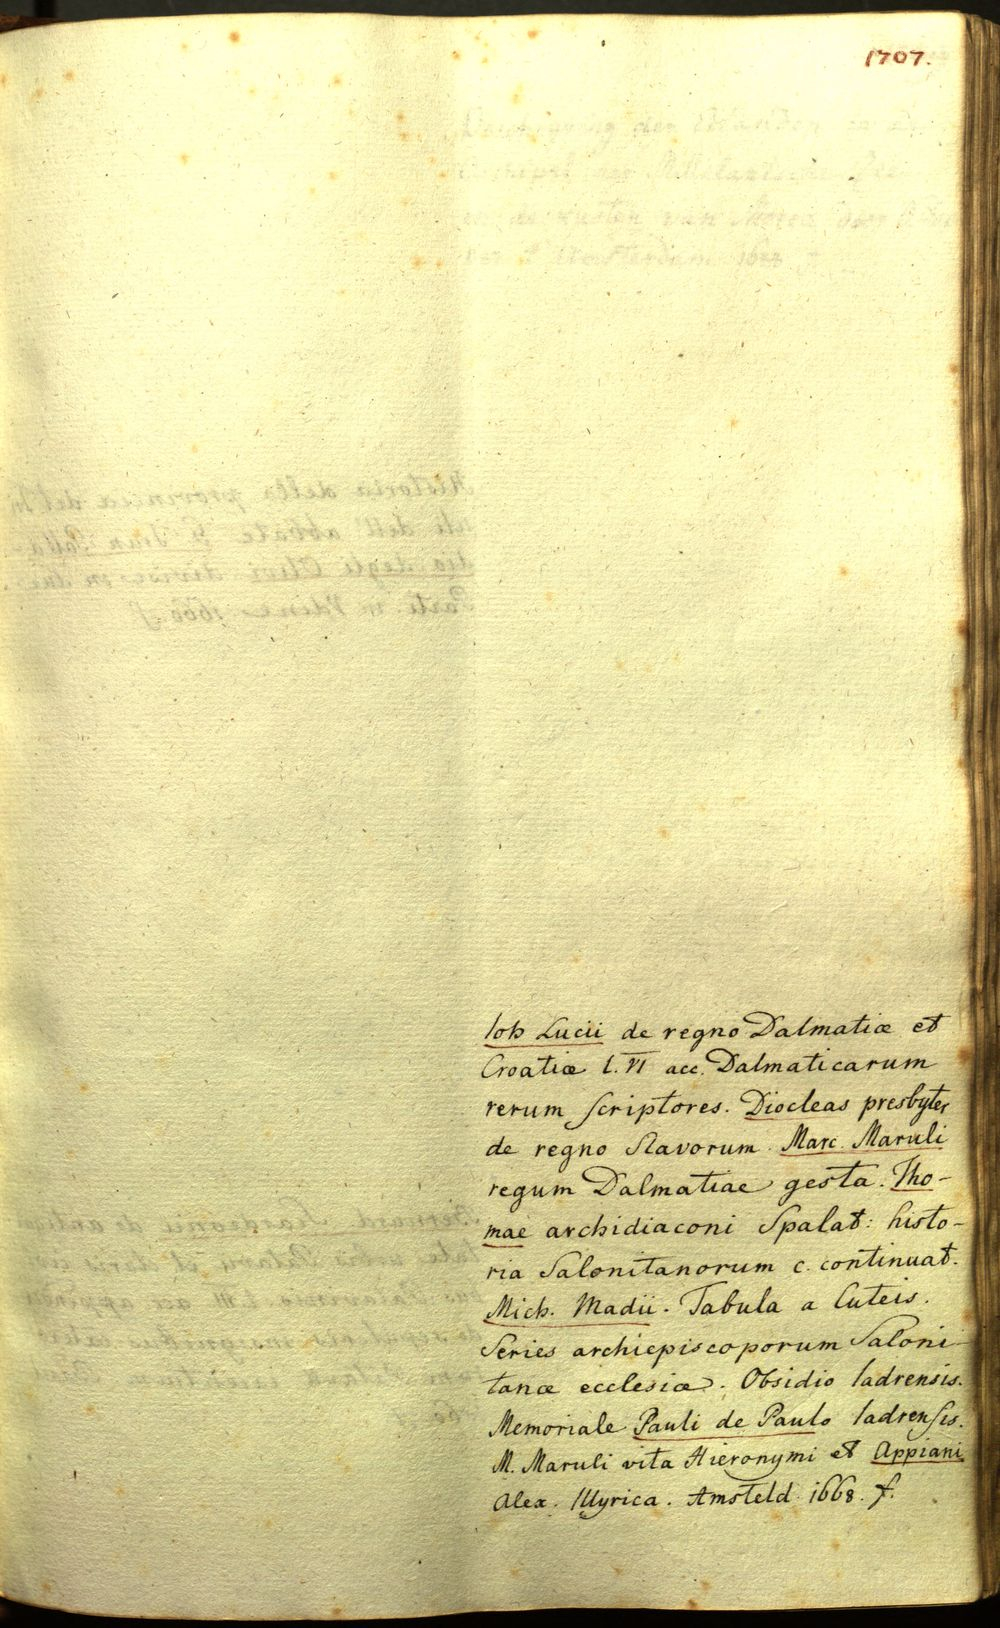 1707.
Ioh Lucii de regno Dalmatiæ et
Croatiæ l. VI acc. Dalmaticarum
rerum scriptores. Diocleas presbyter
de regno Slavorum. Marc. Maruli
regum Dalmatiae gesta. Tho-
mae archidiaconi Spalat: histo-
ria Salonitanorum c. continuat.
Mich. Madii. Tabula a Cuteis.
Series archiepiscoporum Saloni-
tanæ ecclesiæ. Obsidio Iadrensis.
Memoriale Pauli de Paulo Iadrensis.
M. Maruli vita Hieronymi et Appiani
Alex. Illyrica. Amsteld. 1668. f.